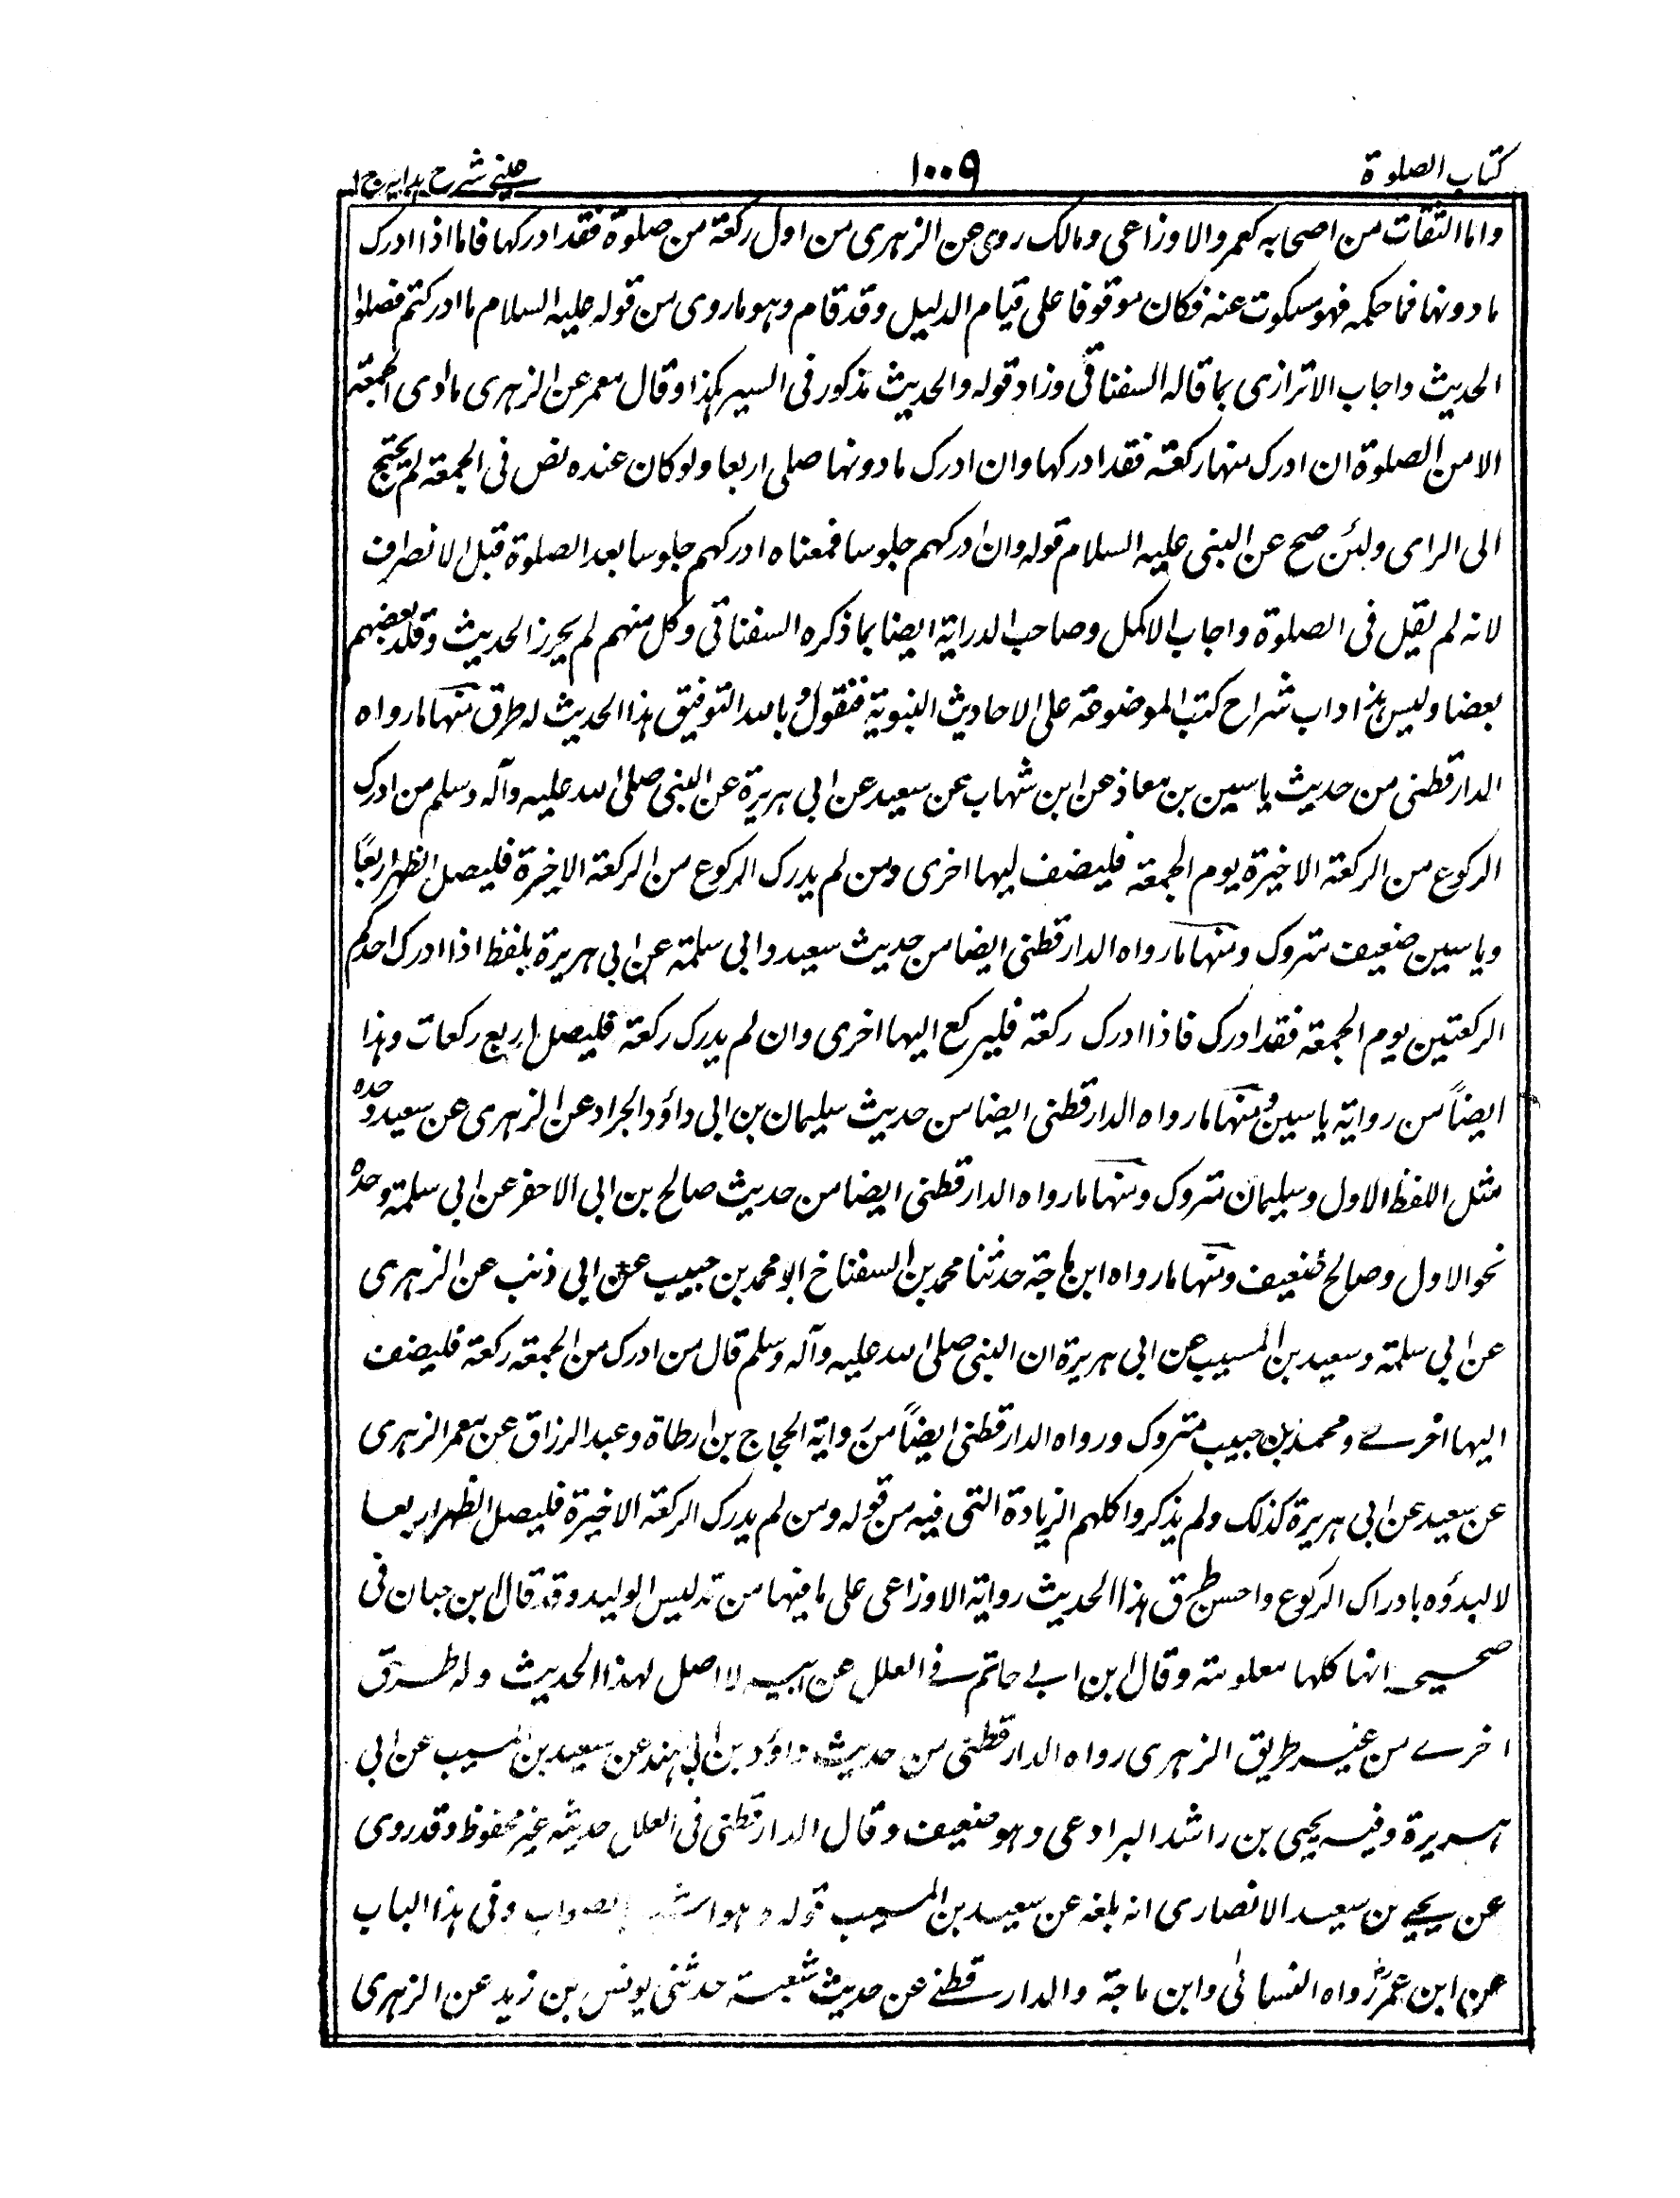 كتاب الصلوة
١٠٠٩
عينے شرح ہدایہ ج ١
واما الثقات من اصحابه كعمر والاوزاعى ومالك روى عن الزهرى من اول ركعة من صلوة فقد ادركها فاما اذا ادرك
ما دونها فما حكمه فهو مسكوت عنه فكان موقوفا على قيام الدليل وقد قام وهو ما روى من قوله عليه السلام ما ادركتم فصلوا
الحديث واجاب الاترازى بما قاله السغناقى وزاد قوله والحديث مذكور فى السير كهذا وقال معمر عن الزهرى ما ادى الجمعة
الا من الصلوة ان ادرك منها ركعة فقد ادركها وان ادرك ما دونها صلى اربعا ولو كان عنده نص فى الجمعة لم يحتج
الى الراى ولئن صح عن النبى عليه السلام قوله وان ادركهم جلوسا فمعناه ادركهم جلوسا بعد الصلوة قبل الانصراف
لانه لم يقل فى الصلوة واجاب الاكمل وصاحب الدراية ايضا بما ذكره السفناقى وكل منهم لم يحرز الحديث وقلد بعضهم
بعضا وليس هذا داب شراح كتب الموضوعة على الاحاديث النبوية فنقول وبالله التوفيق هذا الحديث له طرق منها ما رواه
الدارقطنى من حديث ياسين بن معاذ عن ابن شهاب عن سعيد عن ابى هريرة عن النبى صلى الله عليه وآله وسلم من ادرك
الركوع من الركعة الاخيرة يوم الجمعة فليضف ليها اخرى ومن لم يدرك الركوع من الركعة الاخيرة فليصل الظهر اربعًا
وياسين ضعيف متروك ومنها ما رواه الدارقطنى ايضا من حديث سعيد وابى سلمة عن ابى هريرة بلفظ اذا ادرك احدكم
الركعتين يوم الجمعة فقد ادرك فاذا ادرك ركعة فليركع اليها اخرى وان لم يدرك ركعة فليصل اربع ركعات وهذا
ايضاً من رواية ياسين ومنها ما رواه الدارقطنى ايضا من حديث سليمان بن ابى داؤد الجراد عن الزهرى عن سعيد وحده
مثل اللفظ الاول وسليمان متروك ومنها ما رواه الدارقطنى ايضا من حديث صالح بن ابى الاحفر عن ابى سلمة وحده
نحو الاول وصالح ضعيف ومنها ما رواه ابن ماجة حدثنا محمد بن السفناخ ابو محمد بن حبيب عن ابى ذئب عن الزهرى
عن ابى سلمة وسعيد بن المسيب عن ابى هريرة ان النبى صلى الله عليه وآله وسلم قال من ادرك من الجمعة ركعة فليضف
اليها اخرے ومحمد بن حبيب متروك ورواه الدارقطنى ايضاً من رواية الحجاج بن ارطاة وعبد الرزاق عن معمر الزهرى
عن سعيد عن ابى هريرة كذلك ولم يذكروا كلهم الزيادة التى فيه من قوله ومن لم يدرك الركعة الاخيرة فليصل الظهر اربعا
لا لبدؤه بادراك الركوع واحسن طرق هذا الحديث رواية الاوزاعى على ما فيها من تدليس الوليد وقد قال ابن حبان فى
صحيحه انها كلها معلومة وقال ابن ابے حاتم فے العلل عن ابيه لا اصل لهذا الحديث وله طرق
اخرے من غير طريق الزهرى رواه الدارقطنى من حديث داؤد بن ابى هند عن سعيد بن المسيب عن ابى
هريرة وفيه يحيى بن راشد البراد عى وهو ضعيف وقال الدارقطنى فى العلل حديثه غير محفوظ وقد روى
عن يحيے بن سعيد الانصارى انه بلغه عن سعيد بن المسيب قوله وهو بالصواب وفى هذا الباب
عن ابن عمر رواه النسائى وابن ماجة والدارقطنے عن حديث شعبة حدثنى يونس بن زيد عن الزهرى